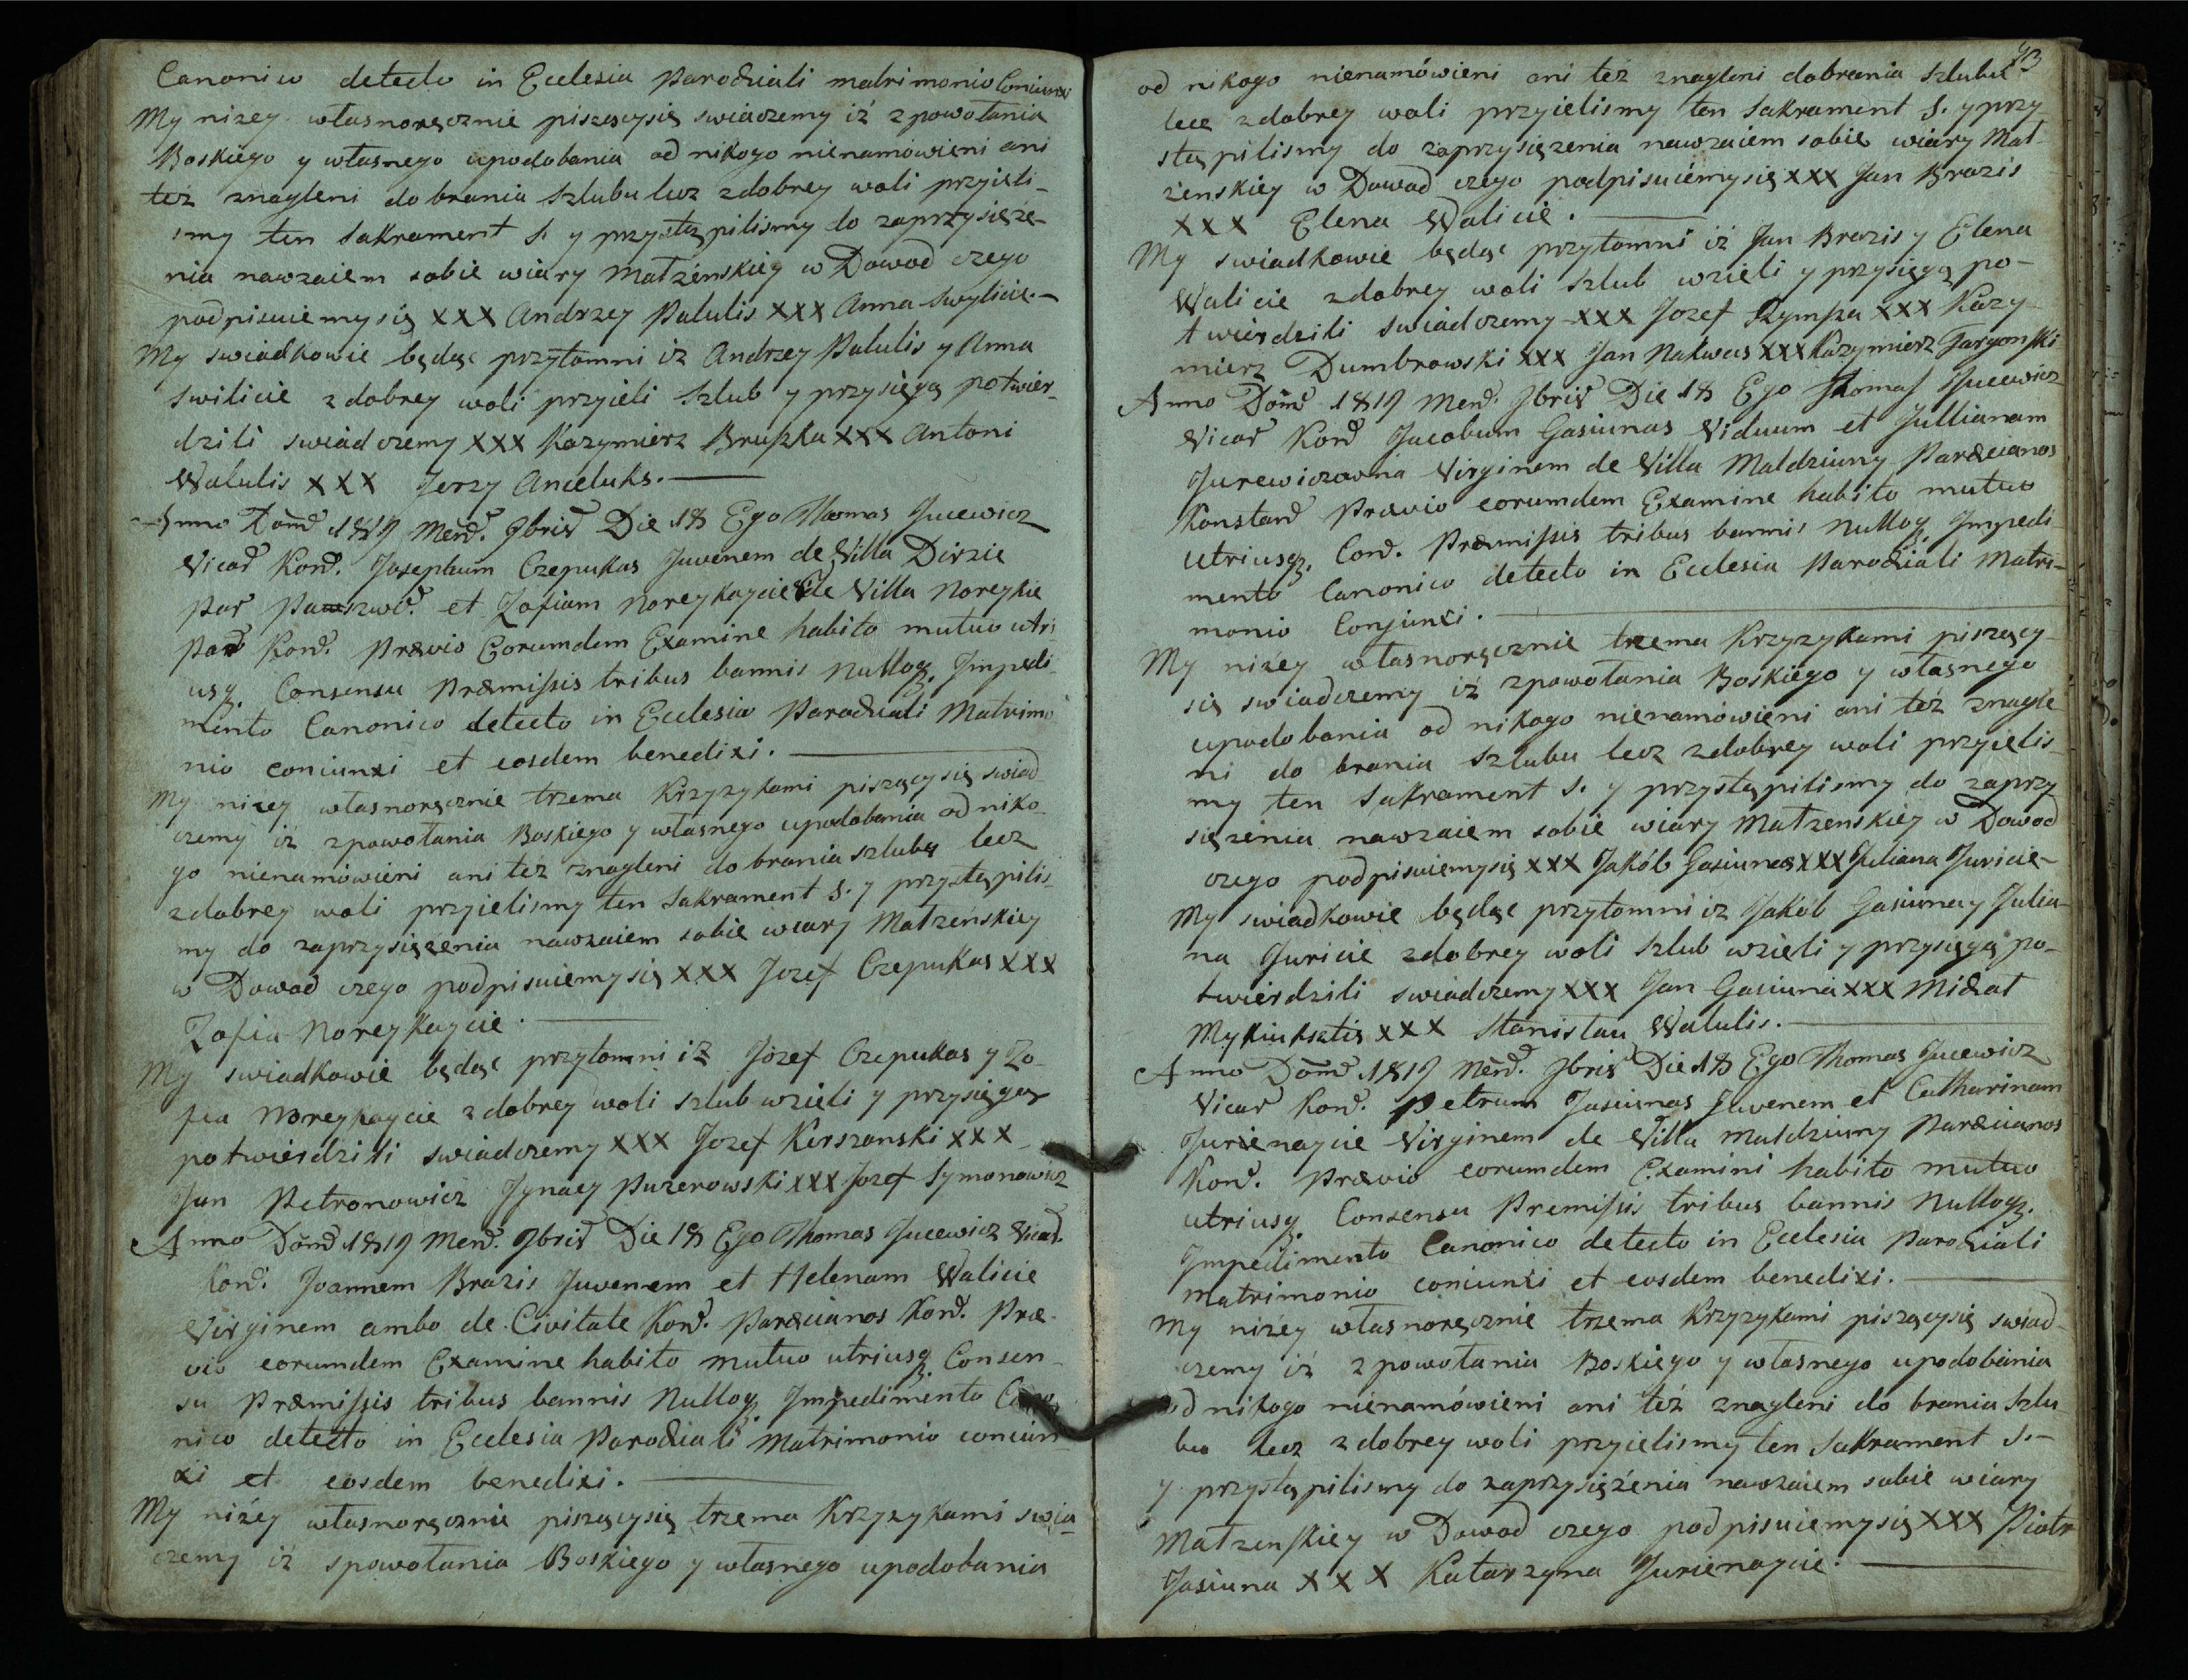 Canonico detecto in Ecclesia Parochiali matrimonio Coniunxi
My nizey własnoręcznie piszącysię swiadczemy iż zpowołania
Boskiego y własnego upodobania od nikogo nienamówieni ani
też znagleni do brania szlubu lecz zdobrey woli przyieli-
smy ten Sakrament S. y przystąpilismy do zaprzysięże-
nia nawzaiem sobie wiary Małżenskiey w Dowod czego
podpisuiemysię XXX Andrzey Palulis XXX Anna Swylicie.-
My swiadkowie będąc przytomni iż Andrzey Palulis y Anna
Swilicie zdobrey woli przyieli Szlub y przysięgą potwier-
dzili swiadczemy XXX Kazymierz Bruszka XXX Antoni
Walulis XXX Jerzy Anieluks.
Anno Dom̃ 1819 Men̄. 9bris Die 18 Ego Thomas Jucewicz
Vicar Kon̄. Josephum Czepukas Juvenem de Villa Dirzie
Par Paszwit. et Zofiam Noreykaycie de Villa Noreykie
Par Kon̄. Prævio Eorumdem Examine habito mutuo utri
usq. Consensu Præmissis tribus bannis Nulloq. Impedi-
mento Canonico detecto in Ecclesia Parochiali Matrimo
nio coniunxi et eosdem benedixi.
My nizey własnoręcznie trzema Krzyzykami piszącysię swiad
czemy iż zpowołania Boskiego y własnego upodobania od niko-
go nienamowieni ani też znagleni do brania szlubu lecz
zdobrey woli przyielismy ten Sakrament S. y przystąpilis-
my do zaprzysięzenia nawzaiem sobie wiary Małżeńskiey
w Dowod czego podpisuiemysię XXX Jozef Czepukas XXX
Zofia Noreykaycie.
My swiadkowie będąc przytomni iż Józef Czepukas y Zo-
fia Noreykaycie zdobrey woli szlub wzieli y przysięgą
potwierdzili swiadczemy XXX Jozef Kirszanski XXX
Jan Petronowicz Jgnacy Puzerowski XXX Jozef Symonowicz
Anno Dom̃ 1819 Men̄. 9bris Die 18 Ego Thomas Jucewicz Vicar.
Kon̄. Joannem Brazis Juvenem et Helenam Walicie
Virginem ambo de Civitate Kon̄. Paræcianos Kon̄. Præ-
vio eorumdem Examine habito mutuo utriusq Consen-
su Præmissis tribus bannis Nulloq Impedimento Cano
nico detecto in Ecclesia Parochiali Matrimonio coniun-
xi et eosdem benedixi.
My niżey własnoręcznie piszącysię trzema Krzyzykami swia-
czemy iż spowołania Boskiego y własnego upodobania
43
od nikogo nienamówieni ani też znagleni dobrania szlubu
lecz zdobrey woli przyielismy ten Sakrament S. y przy
stąpilismy do zaprzysięzenia nawzaiem sobie wiary Mał-
żenskiey w Dowod czego podpisuiémysię XXX Jan Brazis
XXX Elena Walicie.
My swiadkowie będąc przytomni iż Jan Brazis y Elena
Walicie zdobrey woli szlub wzieli y przysięgą po-
twierdzili swiadczemy XXX Jozef Rympza XXX Kazy-
mierz Dumbrowski XXX Jan Nakwas XXX Kazymierz Targonski
Anno Dom̃ 1819 Men̄. 9bris Die 18 Ego Thomas Jucewicz
Vicar Kon̄ Jacobum Gasiunas Viduum et Jullianam
Jurewiczowna Virginem de Villa Maldziuny Paræcianos
Konstan̄ Prævio eorumdem Examine habito mutuo
Utriusq. Con̄. Præmissis tribus bannis Nulloq Impedi-
mento Canonico detecto in Ecclesia Parochiali Matri-
monio Conjunxi.
My niżey własnoręcznie trzema Krzyzykami piszący-
się swiadczemy iż zpowołania Boskiego y własnego
upodobania od nikogo nienamówieni ani też znagle-
ni do brania szlubu lecz zdobrey woli przyielis-
my ten Sakrament S. y przystąpilismy do zaprzy
sięzenia nawzaiem sobie wiary Małzenskiey w Dowod
czego podpisuiemysię XXX Jakób Gasiunas XXX Juliana Juricie-
My swiadkowie będąc przytomni iż Jakób Gasiuna y Julia-
na Juricie zdobrey woli szlub wzieli y przysięgą po-
twierdzili swiadczemy XXX Jan Gasiuna XXX Michał
Mykiuksztis XXX Stanisłau Walulis.
Anno Dom̃ 1819 Men̄. 9bris Die 18 Ego Thomas Jucewicz
Vicar Kon̄. Petrum Jasiunas Juvenem et Catharinam
Jurienaycie Virginem de Villa Maldziuny Paræcianos
Kon̄. Prævio eorumdem Examini habito mutuo
utriusq Consensu Premissis tribus bannis Nulloq.
Impedimento Canonico detecto in Ecclesia Parochiali
Matrimonio coniunxi et eosdem benedixi.
My niżey własnoręcznie trzema Krzyzykami piszącysię swiad-
czemy iż zpowołania Boskiego y własnego upodobania
od nikogo nienamówieni ani też znagleni do brania szlu
bu lecz zdobrey woli przyielismy ten Sakrament S.-
y przystąpilismy do zaprzysiężenia nawzaiem sobie wiary
Małzenskiey w Dowod czego podpisuiemysię XXX Piotr
Jasiuna XXX Katarzyna Jurienaycie.